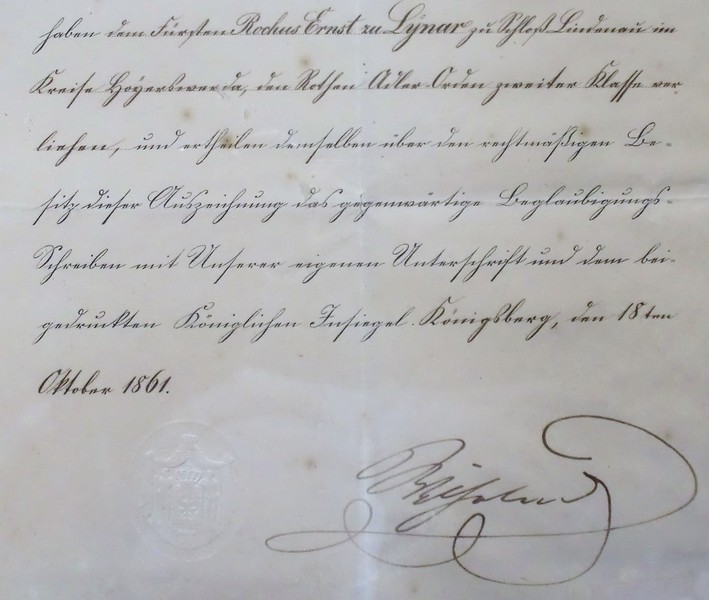 haben dem Fürsten Rochus Ernst zu Lynar zu Schloß Lindenau im
Kreise Hoyerswerda, den Rothen Adler-Orden zweiter Klasse ver
liehen, und ertheilen demselben über den rechtmäßigen Be-
sitz dieser Auszeichnung das gegenwärtige Beglaubigungs-
Schreiben mit Unserer eigenen Unterschrift und dem bei-
gedruckten Königlichen Insiegel. Königsberg, den 18ten
Oktober 1861.
Wilhelm